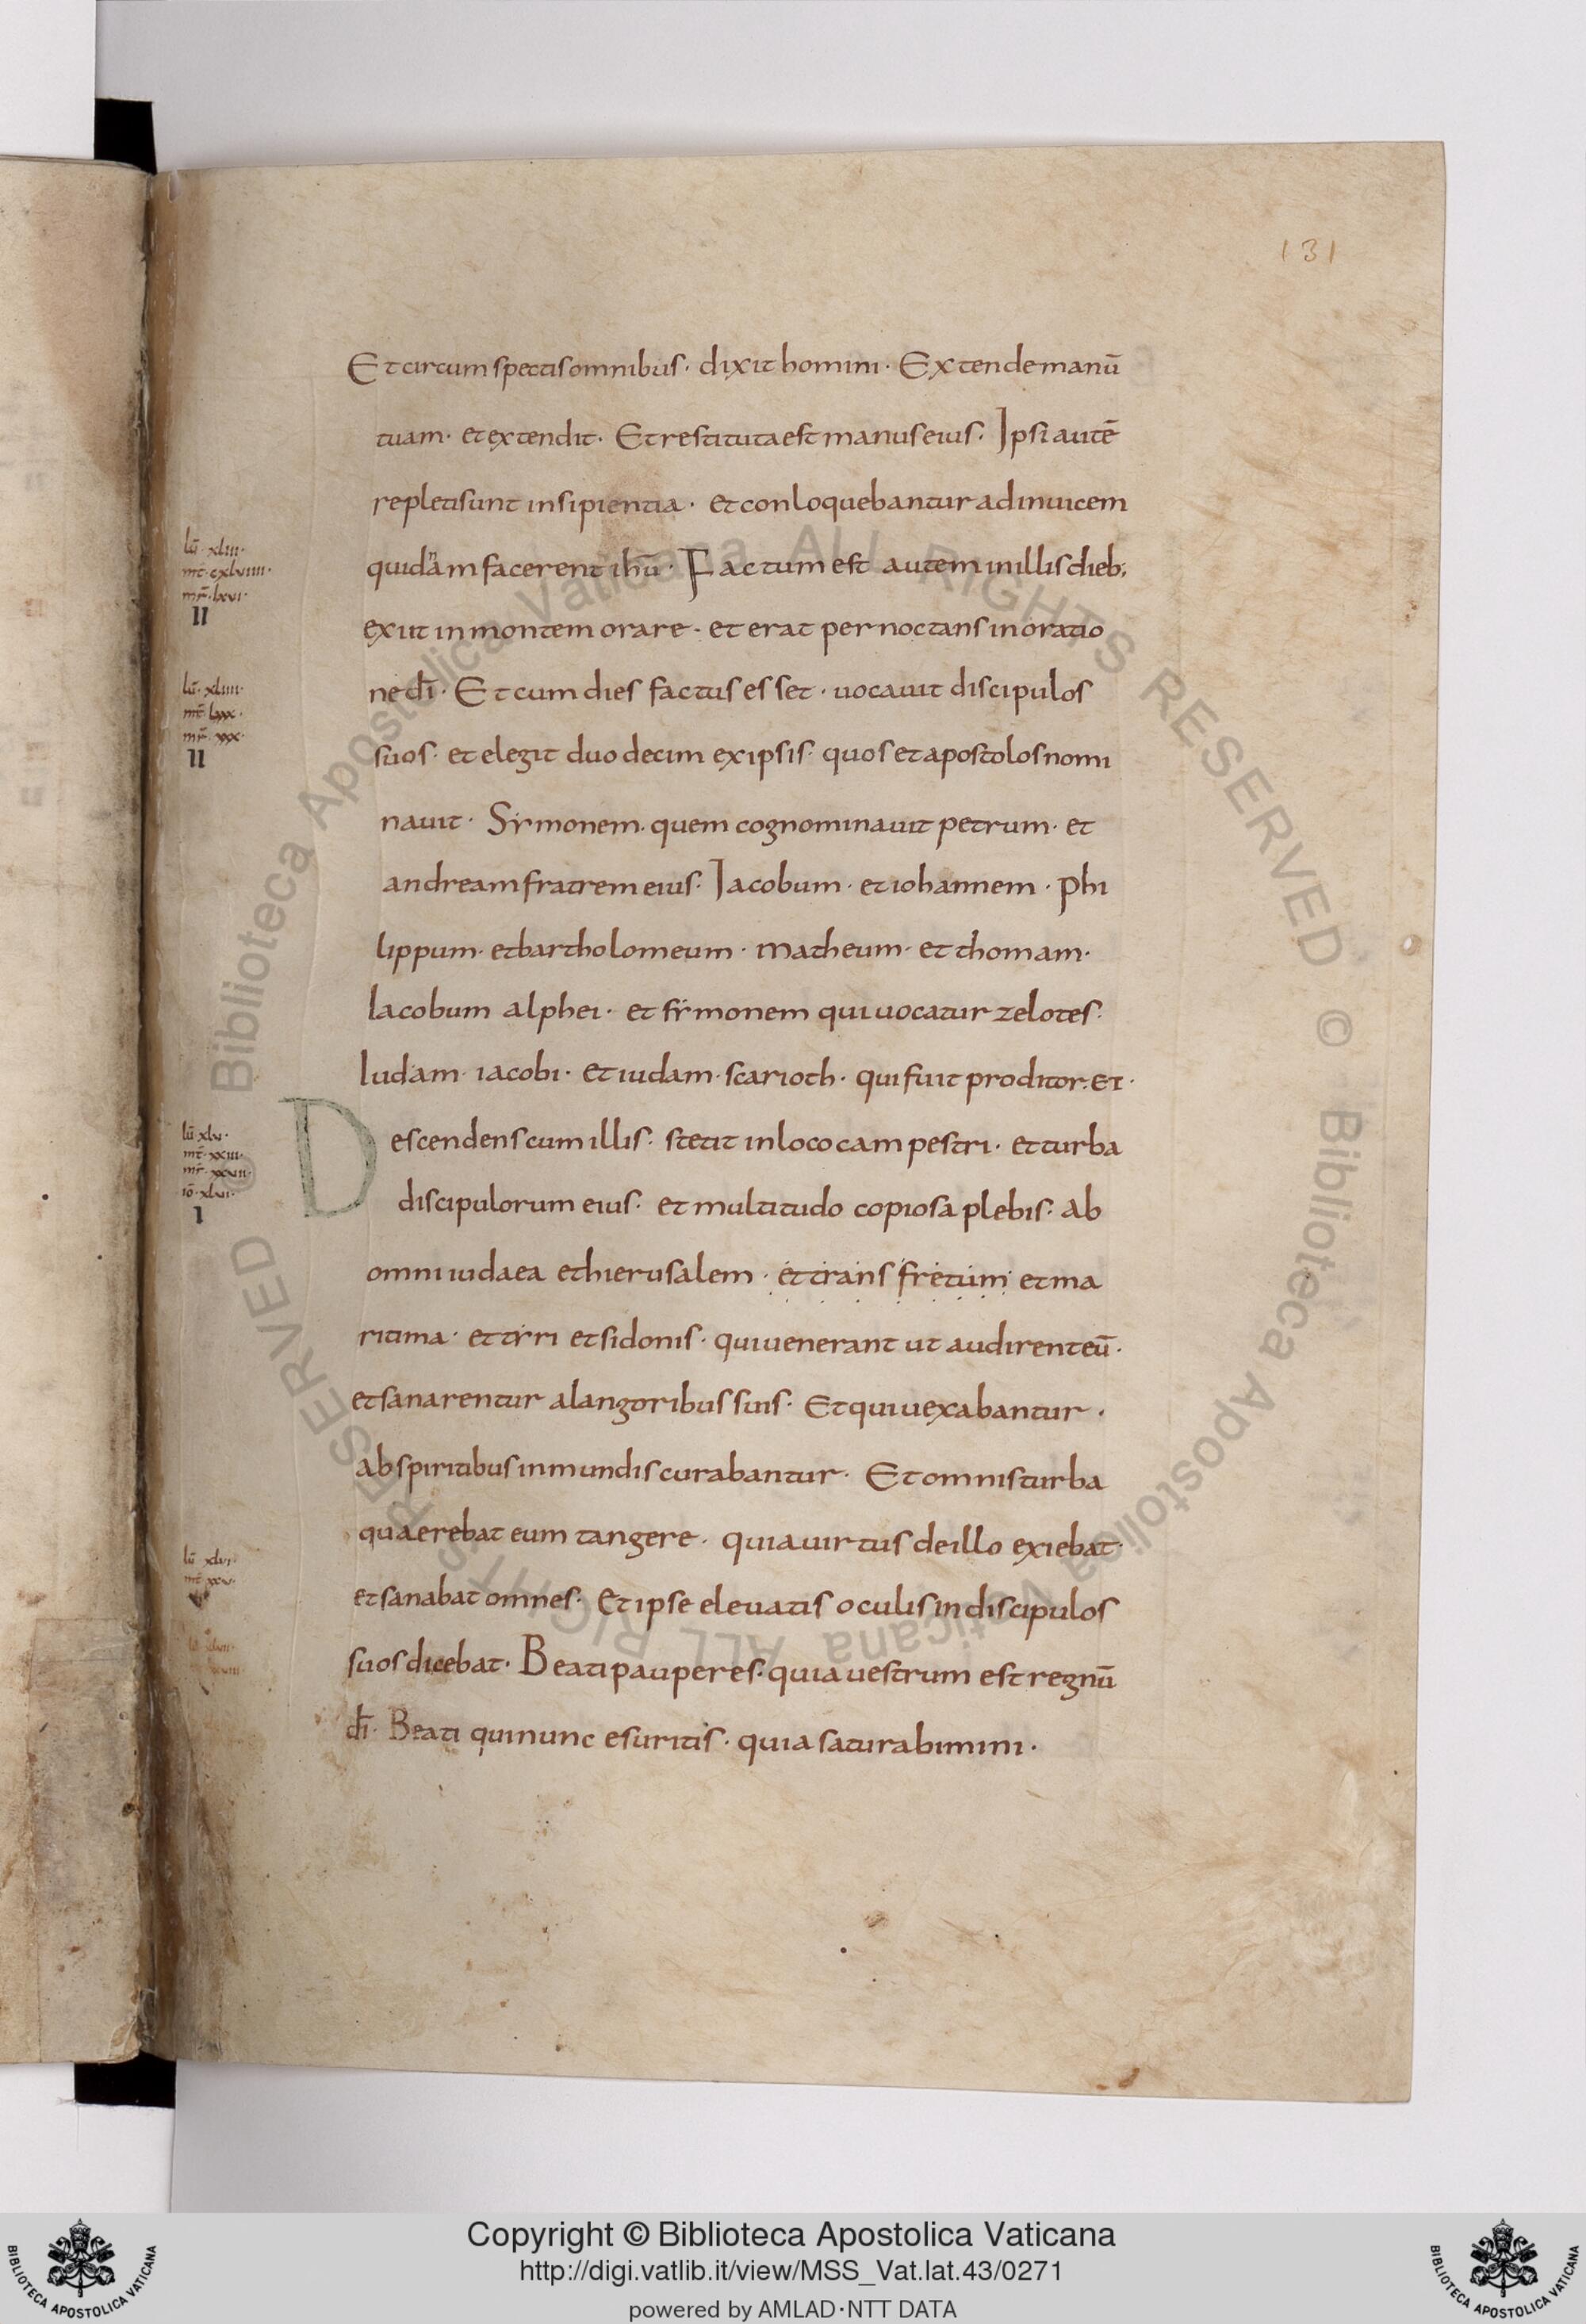 131
Et circum spectis omnibus· dixit homini· Extende manū
tuam· et extendit· Et restituta est manus eius· Ipsi autē
repleti sunt insipientia· et conloquebantur adinuicem
quidnam facerent ihū· Factum est autem in illis dieb;
exiit in montem orare· et erat pernoctans in oratio
ne dī· Et cum dies factus esset· uocauit discipulos
suos· et elegit duodecim ex ipsis· quos et apostolos nomi
nauit· Sẏmonem· quem cognominauit petrum· et
andream fratrem eius· Iacobum· et iohannem· Phi
lippum· et bartholomeum· Matheum· et thomam·
Iacobum alphei· et sẏmonem qui uocatur zelotes·
Iudam· iacobi· et iudam· scarioth· qui fuit proditor· et·
Descendens cum illis· stetit in loco campestri· et turba
discipulorum eius· et multitudo copiosa plebis· ab
omni iudaea et hierusalem· et trans fretum et ma
ritima· et tẏri et sidonis· qui uenerant ut audirent eū·
et sanarentur a langoribus suis· Et qui uexabantur·
ab spiritibus inmundis curabantur· Et omnis turba
quaerebat eum tangere· quia uirtus de illo exiebat·
et sanabat omnes· Et ipse eleuatis oculis in discipulos
suos dicebat· Beati pauperes· quia uestrum est regnū
dī· Beati qui nunc esuritis· quia saturabimini·
lū· xliii·
mt̄· cxlviiii·
mr̄· lxvi·
II
lū· xliiii·
mt̄· lxxx·
mr̄· xxx·
II
lū xlv·
mt̄· xxiii·
mr̄· xxvii·
iō· xlvi·
I
lū xlvi·
mt̄· xxv·
Biblioteca Apostolica Vaticana ALL RIGHTS RESERVED © Biblioteca Apostolica Vaticana ALL RIGHTS RESERVED ©
Copyright © Biblioteca Apostolica Vaticana
http://digi.vatlib.it/view/MSS_Vat.lat.43/0271
powered by AMLAD·NTT DATA
BIBLIOTECA APOSTOLICA VATICANA
BIBLIOTECA APOSTOLICA VATICANA